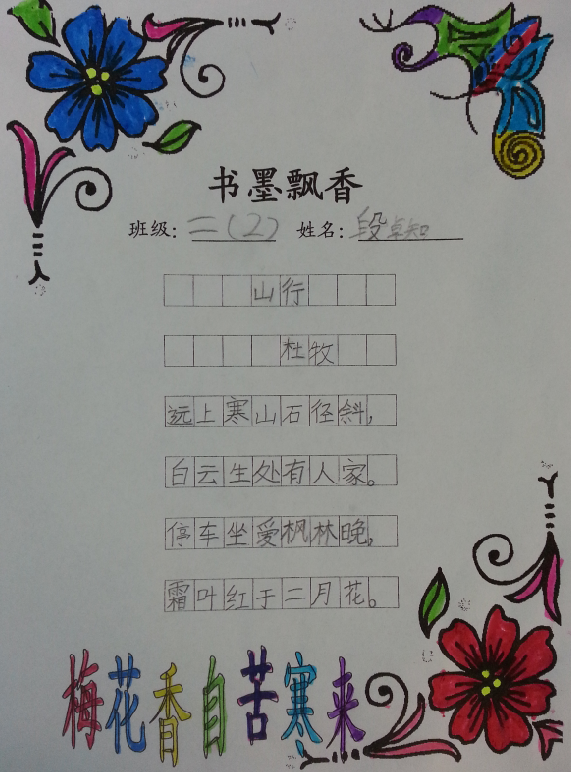 书墨飘香
班级：二（2） 姓名：段卓知
山行
杜牧
远上寒山石径斜，
白云生处有人家。
停车坐爱枫林晚，
霜叶红于二月花。
梅花香自苦寒来